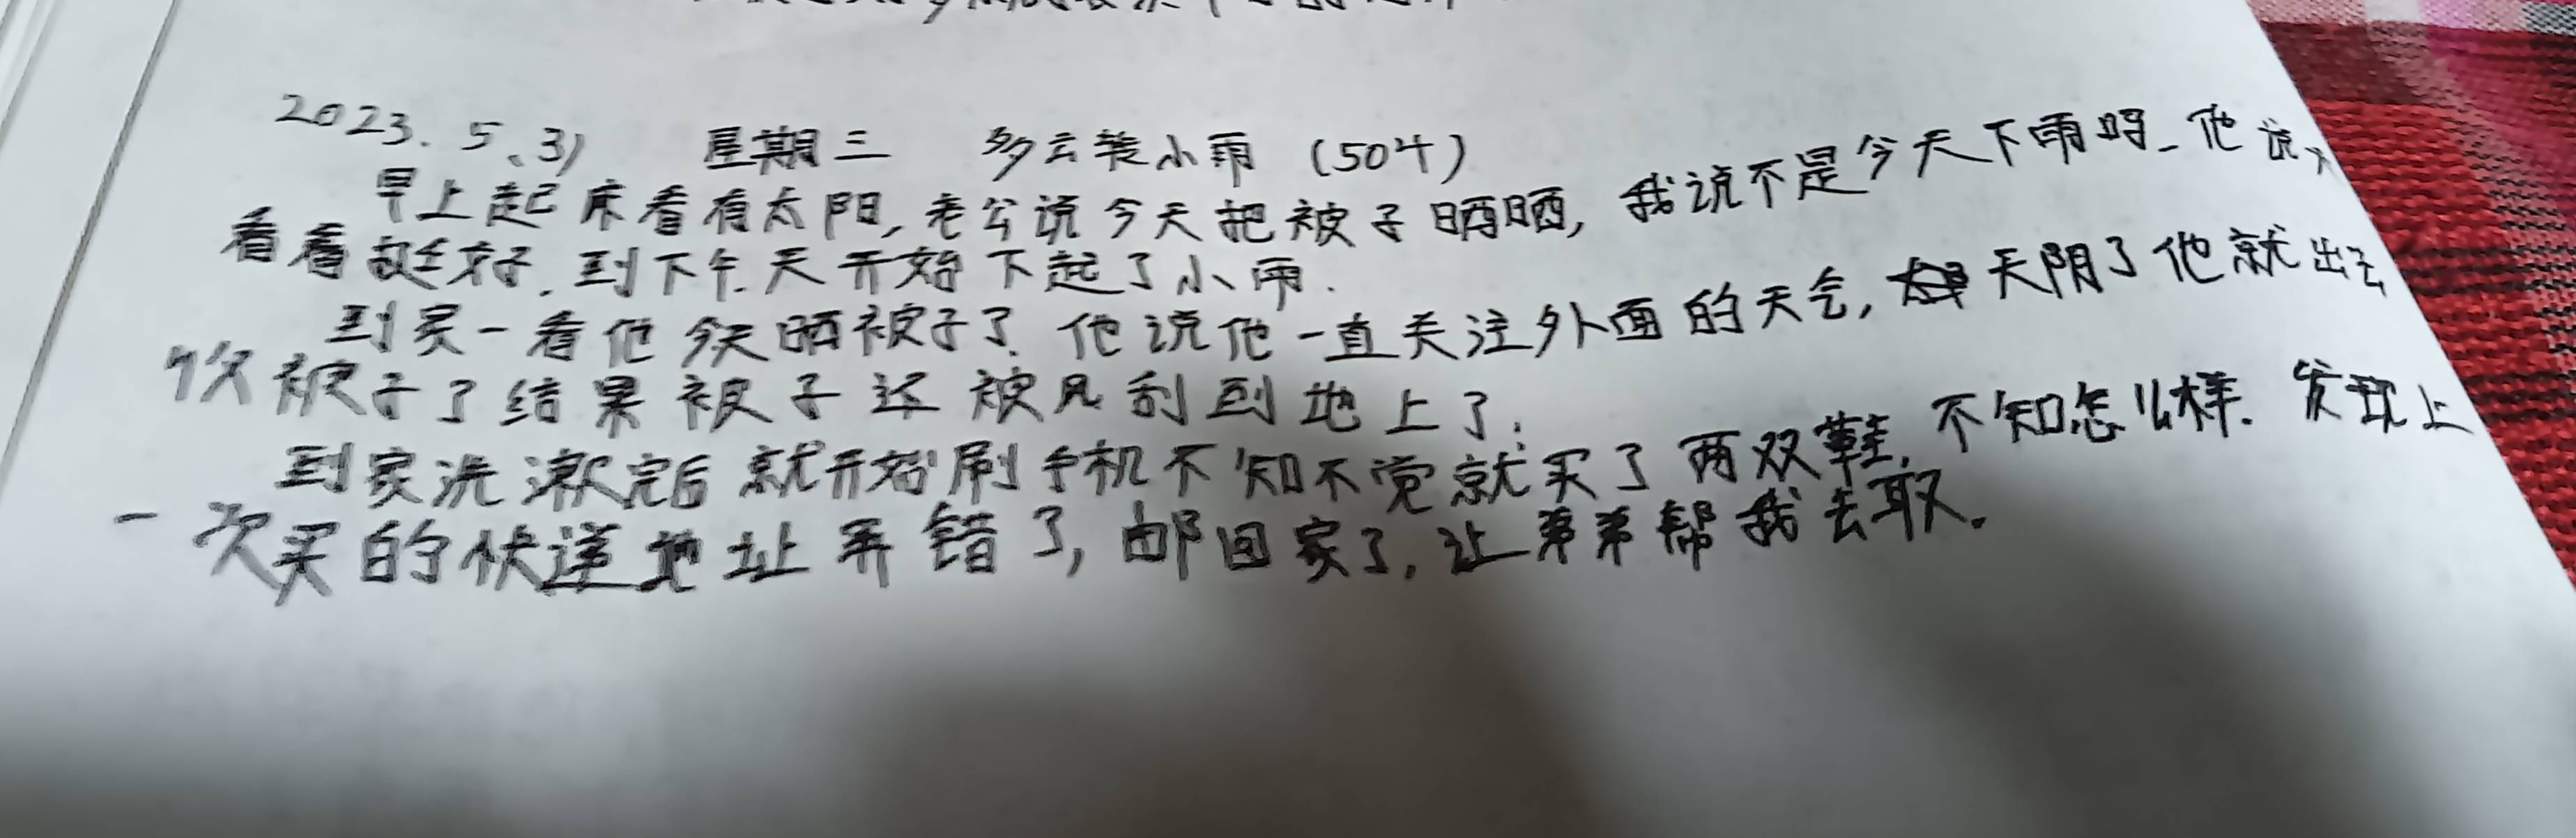 2023.5.31 星期三 多云转小雨 (504)
早上起床看有太阳,老公说今天把被子晒晒,我说不是今天下雨吗_他说,
看看挺好.到下午.天开始下起了小雨.
到家一看他今天晒被子了.他说他一直关注外面的天气,天阴了他就出去
收被子了结果被子还被风刮到地上了.
到家洗漱完后就开始刷手机不知不觉就买了两双鞋,不知怎么样.发现上
一次买的快递地址弄错了,邮回家了,让弟弟帮我去取.